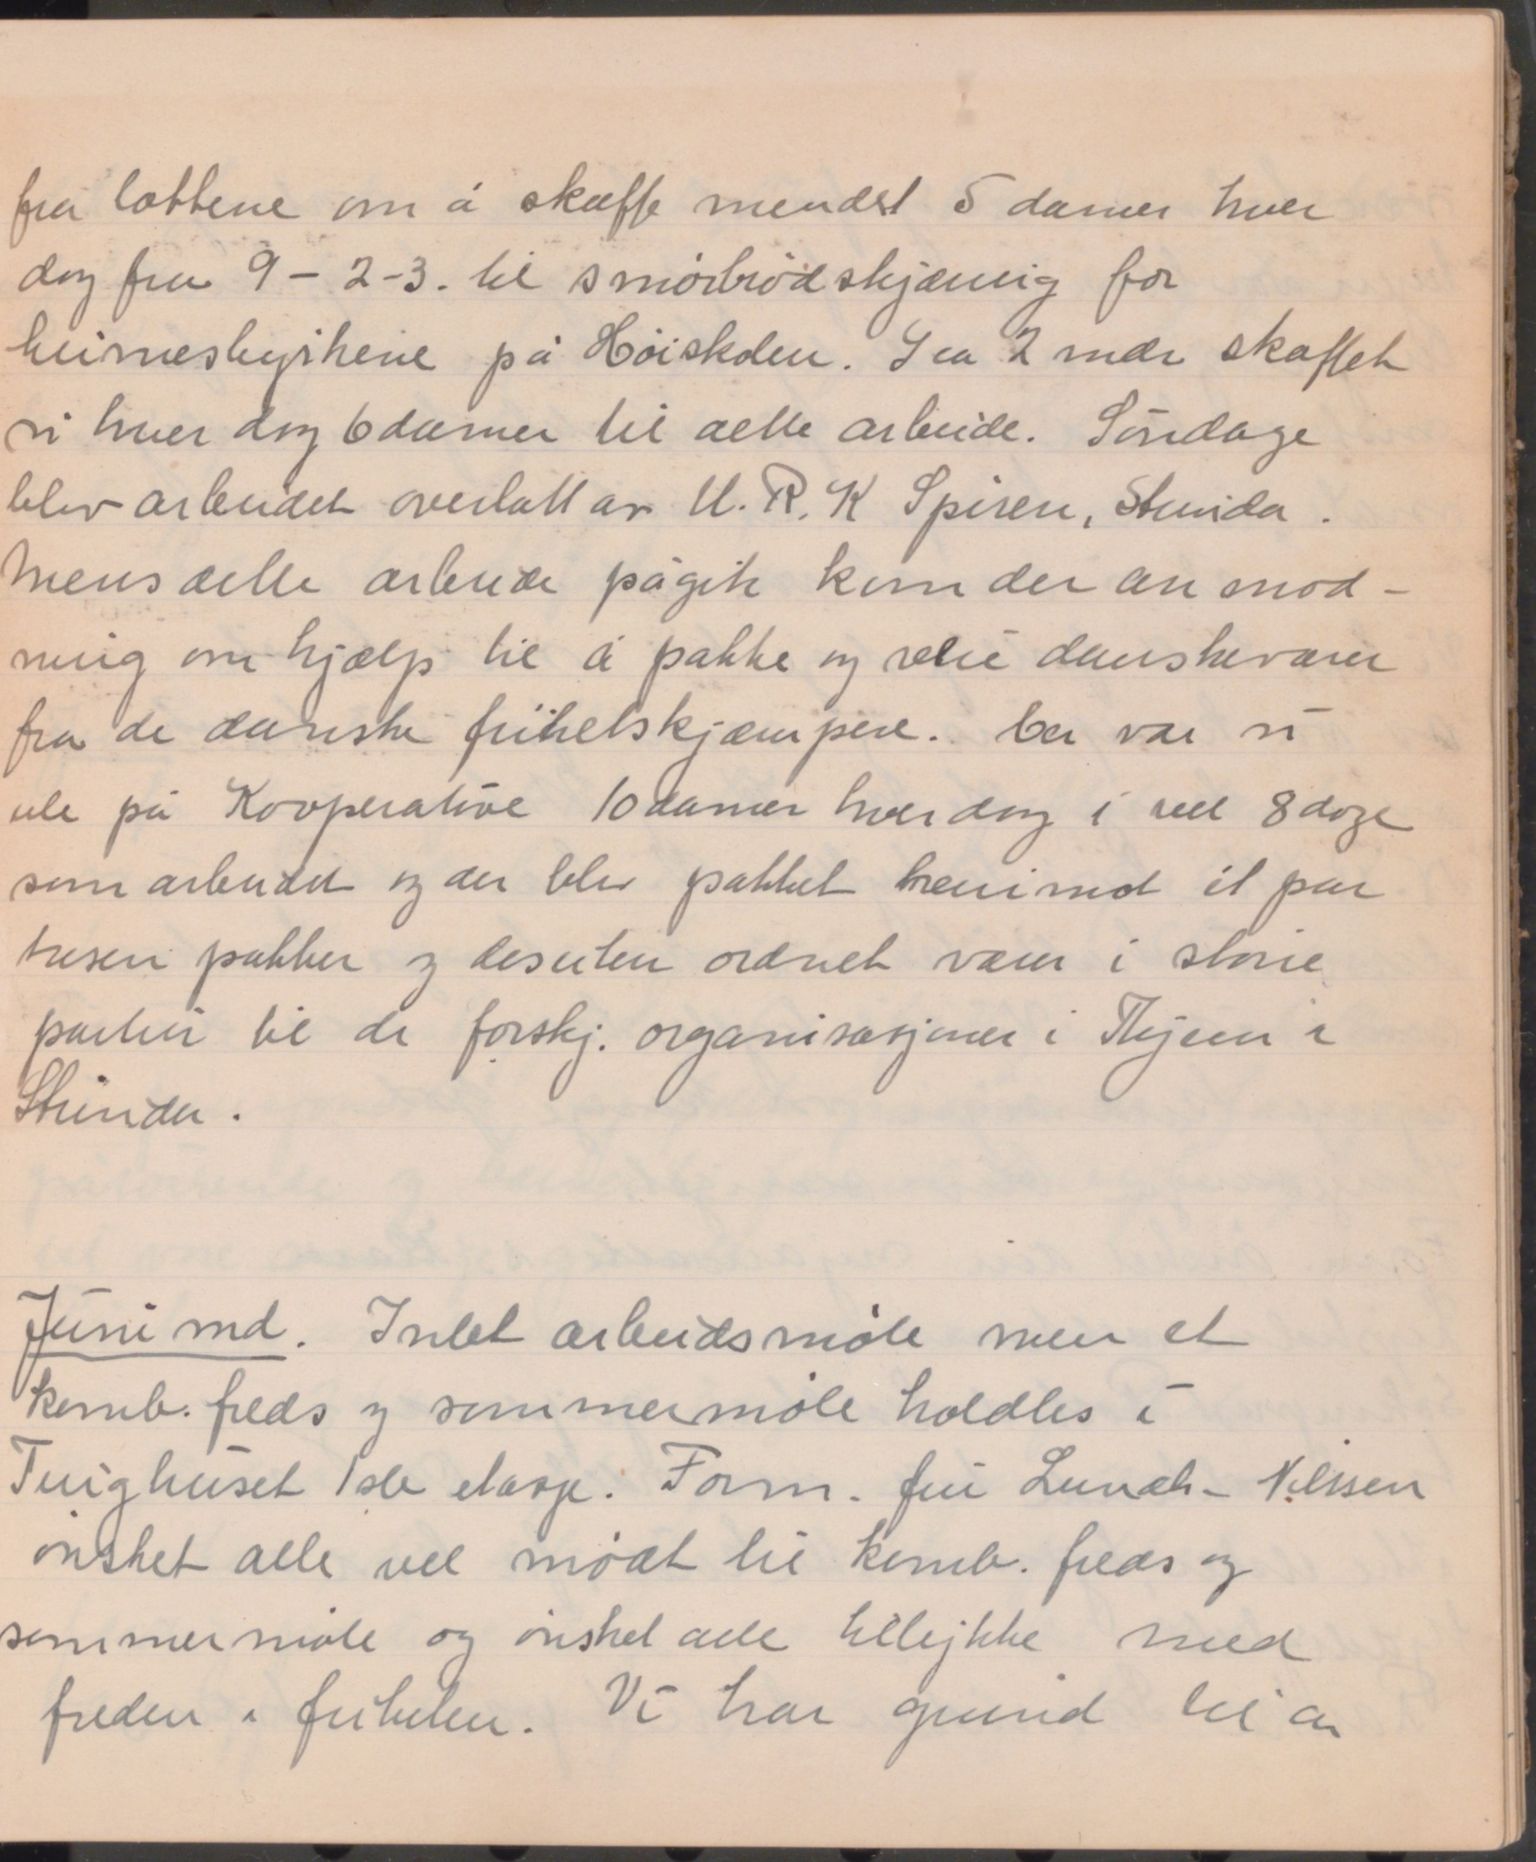 fra lottene om å skaffe mendst 5 damer hver
dag fra 9 - 2-3. til smörbrödskjæring for
heimestyrkene på Höiskolen. I ca 2 mdr skaffet
vi hver dag 6 damer til dette arbeide. Söndage
blev arbeidet overlatt av U. R. K Spiren, Strinda.
Mens dette arbeide pågik kom der anmod-
ning om hjælp til å pakke og veie danskevarer
fra de danske frihetskjæmpere. Her var vi
ute på Kooperative 10 damer hver dag i vel 8 dage
som arbeidet og der blev pakket henimot et par
tusen pakker og desuten ordnet varer i större
partier til de forskj. organisasjoner i Thjem i
Strinda.
Juni md. Intet arbeidsmöte men et
komb. freds og sommermöte holdtes i
Tinghuset 1ste etasje. Form. fru Lundh-Nilssen
önsket alle vel mödt til komb. freds og
sommermöte og önsket alle tillykke med
freden i friheten. Vi har grund til at